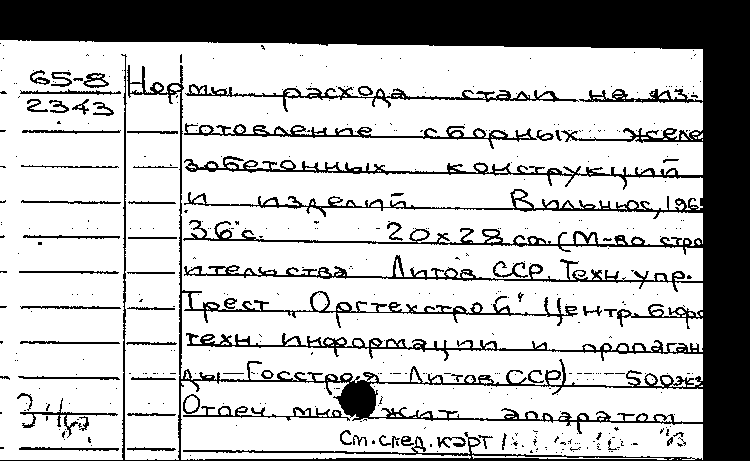 65-8 Нормы расхода стали не из-
2343
готовление сборных желе
зобетонных конструкций
и изделий. Вильнюс, 196
36 с. 20х28 см. (М-во стро
ительства Литов ССР. Техн. упр.
Трест „Оргтехстрой" Центр. бюро
техн. информации и пропаган
ды Госстроя Литов. ССР). 500 экз
Отпеч. множит аппаратом
См. след. карт